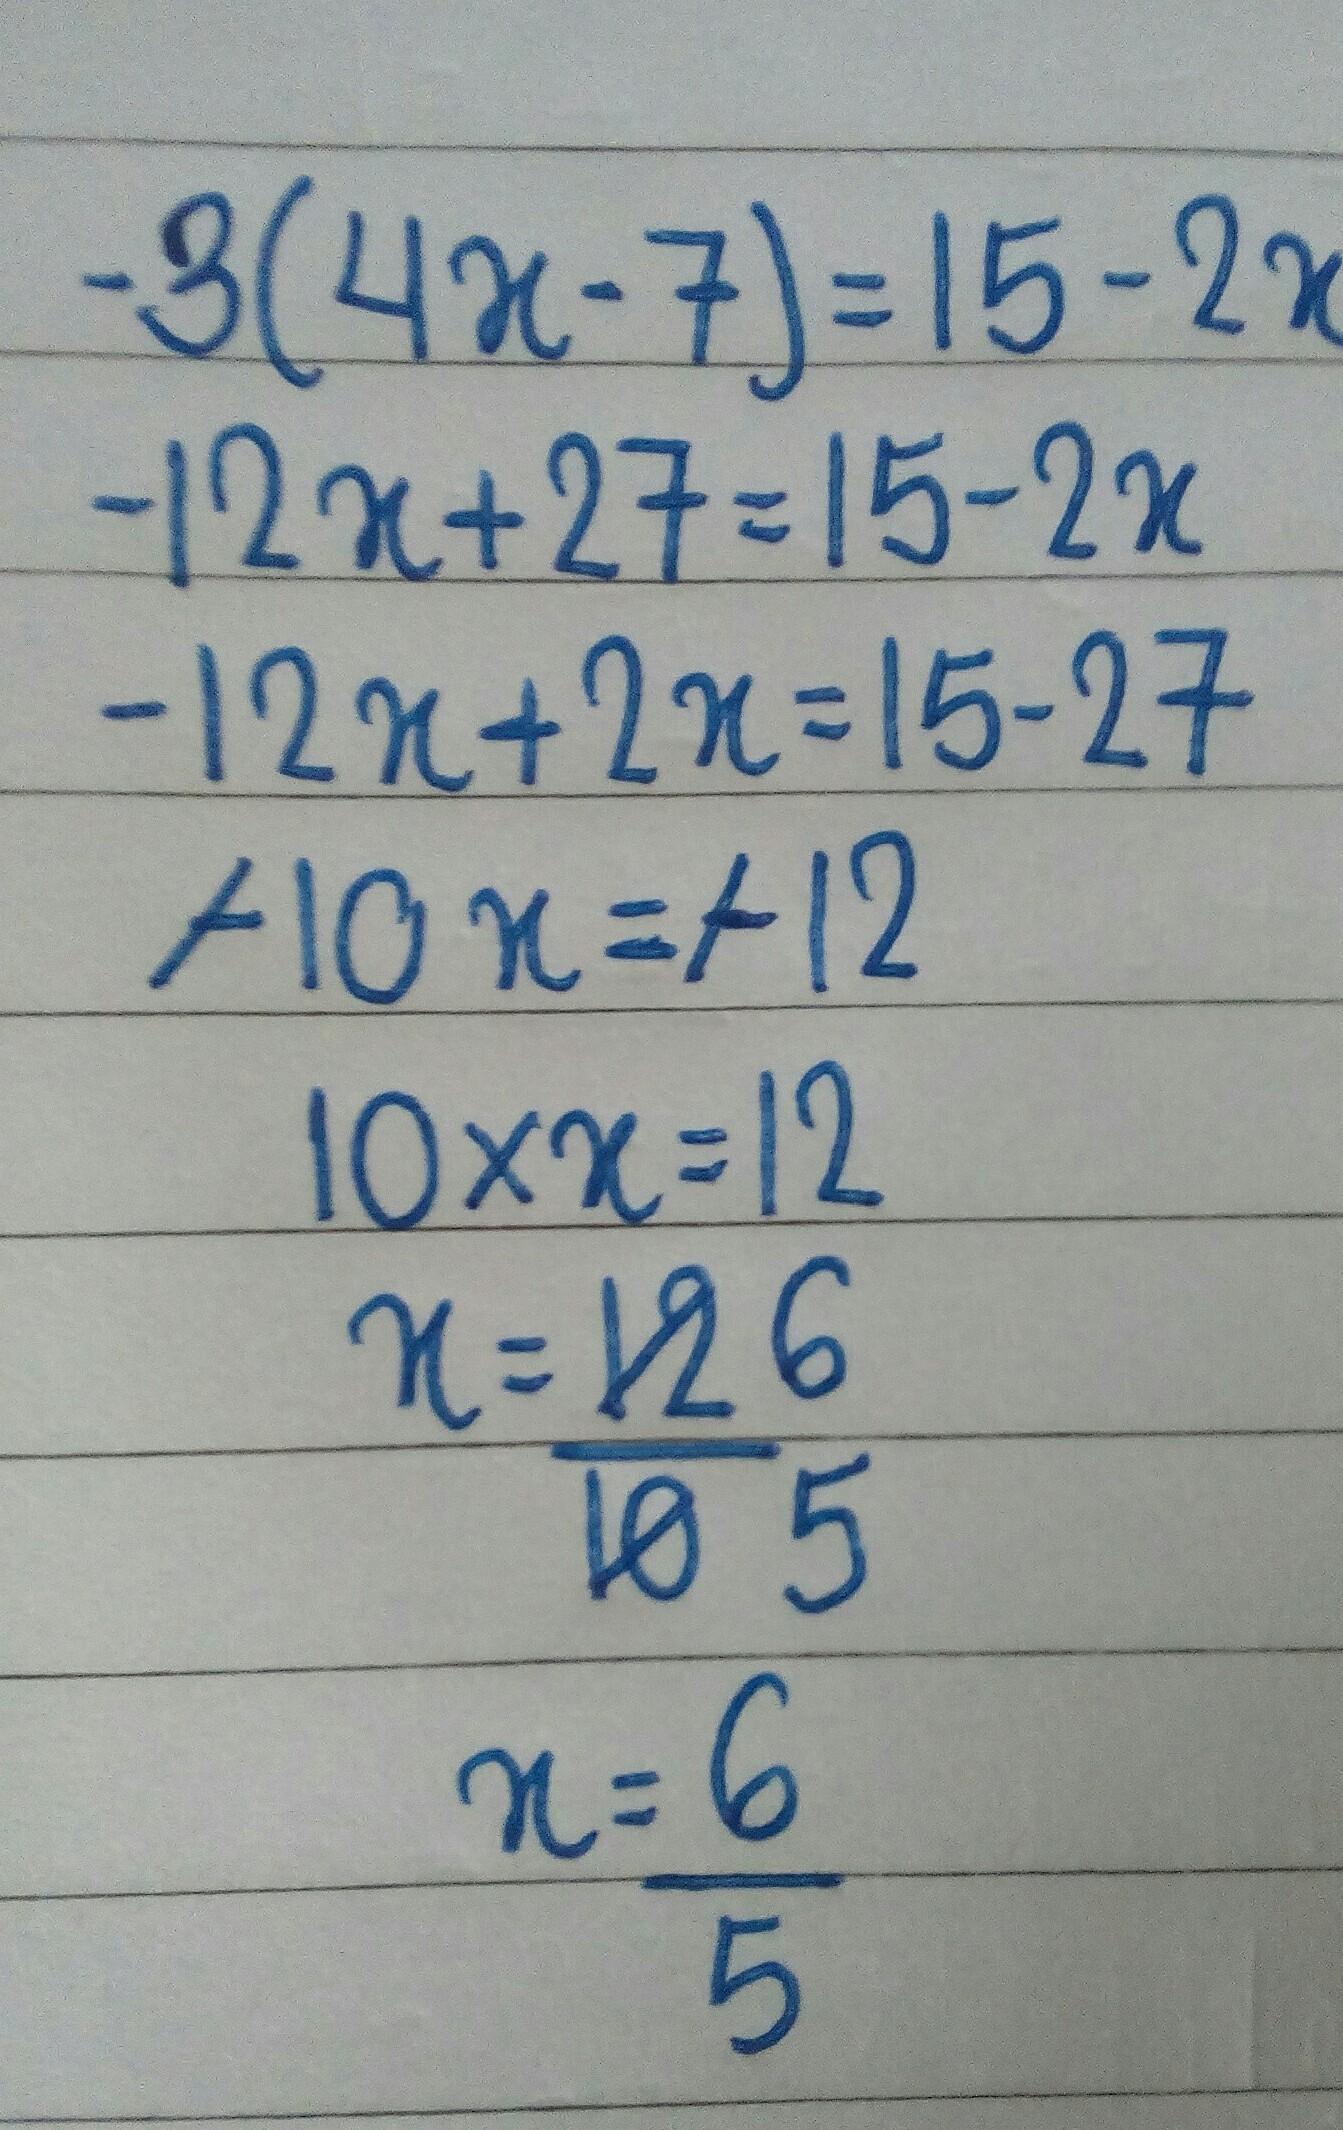 -3(4x-7)=15-2x
-12x+27=15-2x
-12x+2x=15-27
-10x=-12
10×x=12
x=12 6
10 5
x=6
5